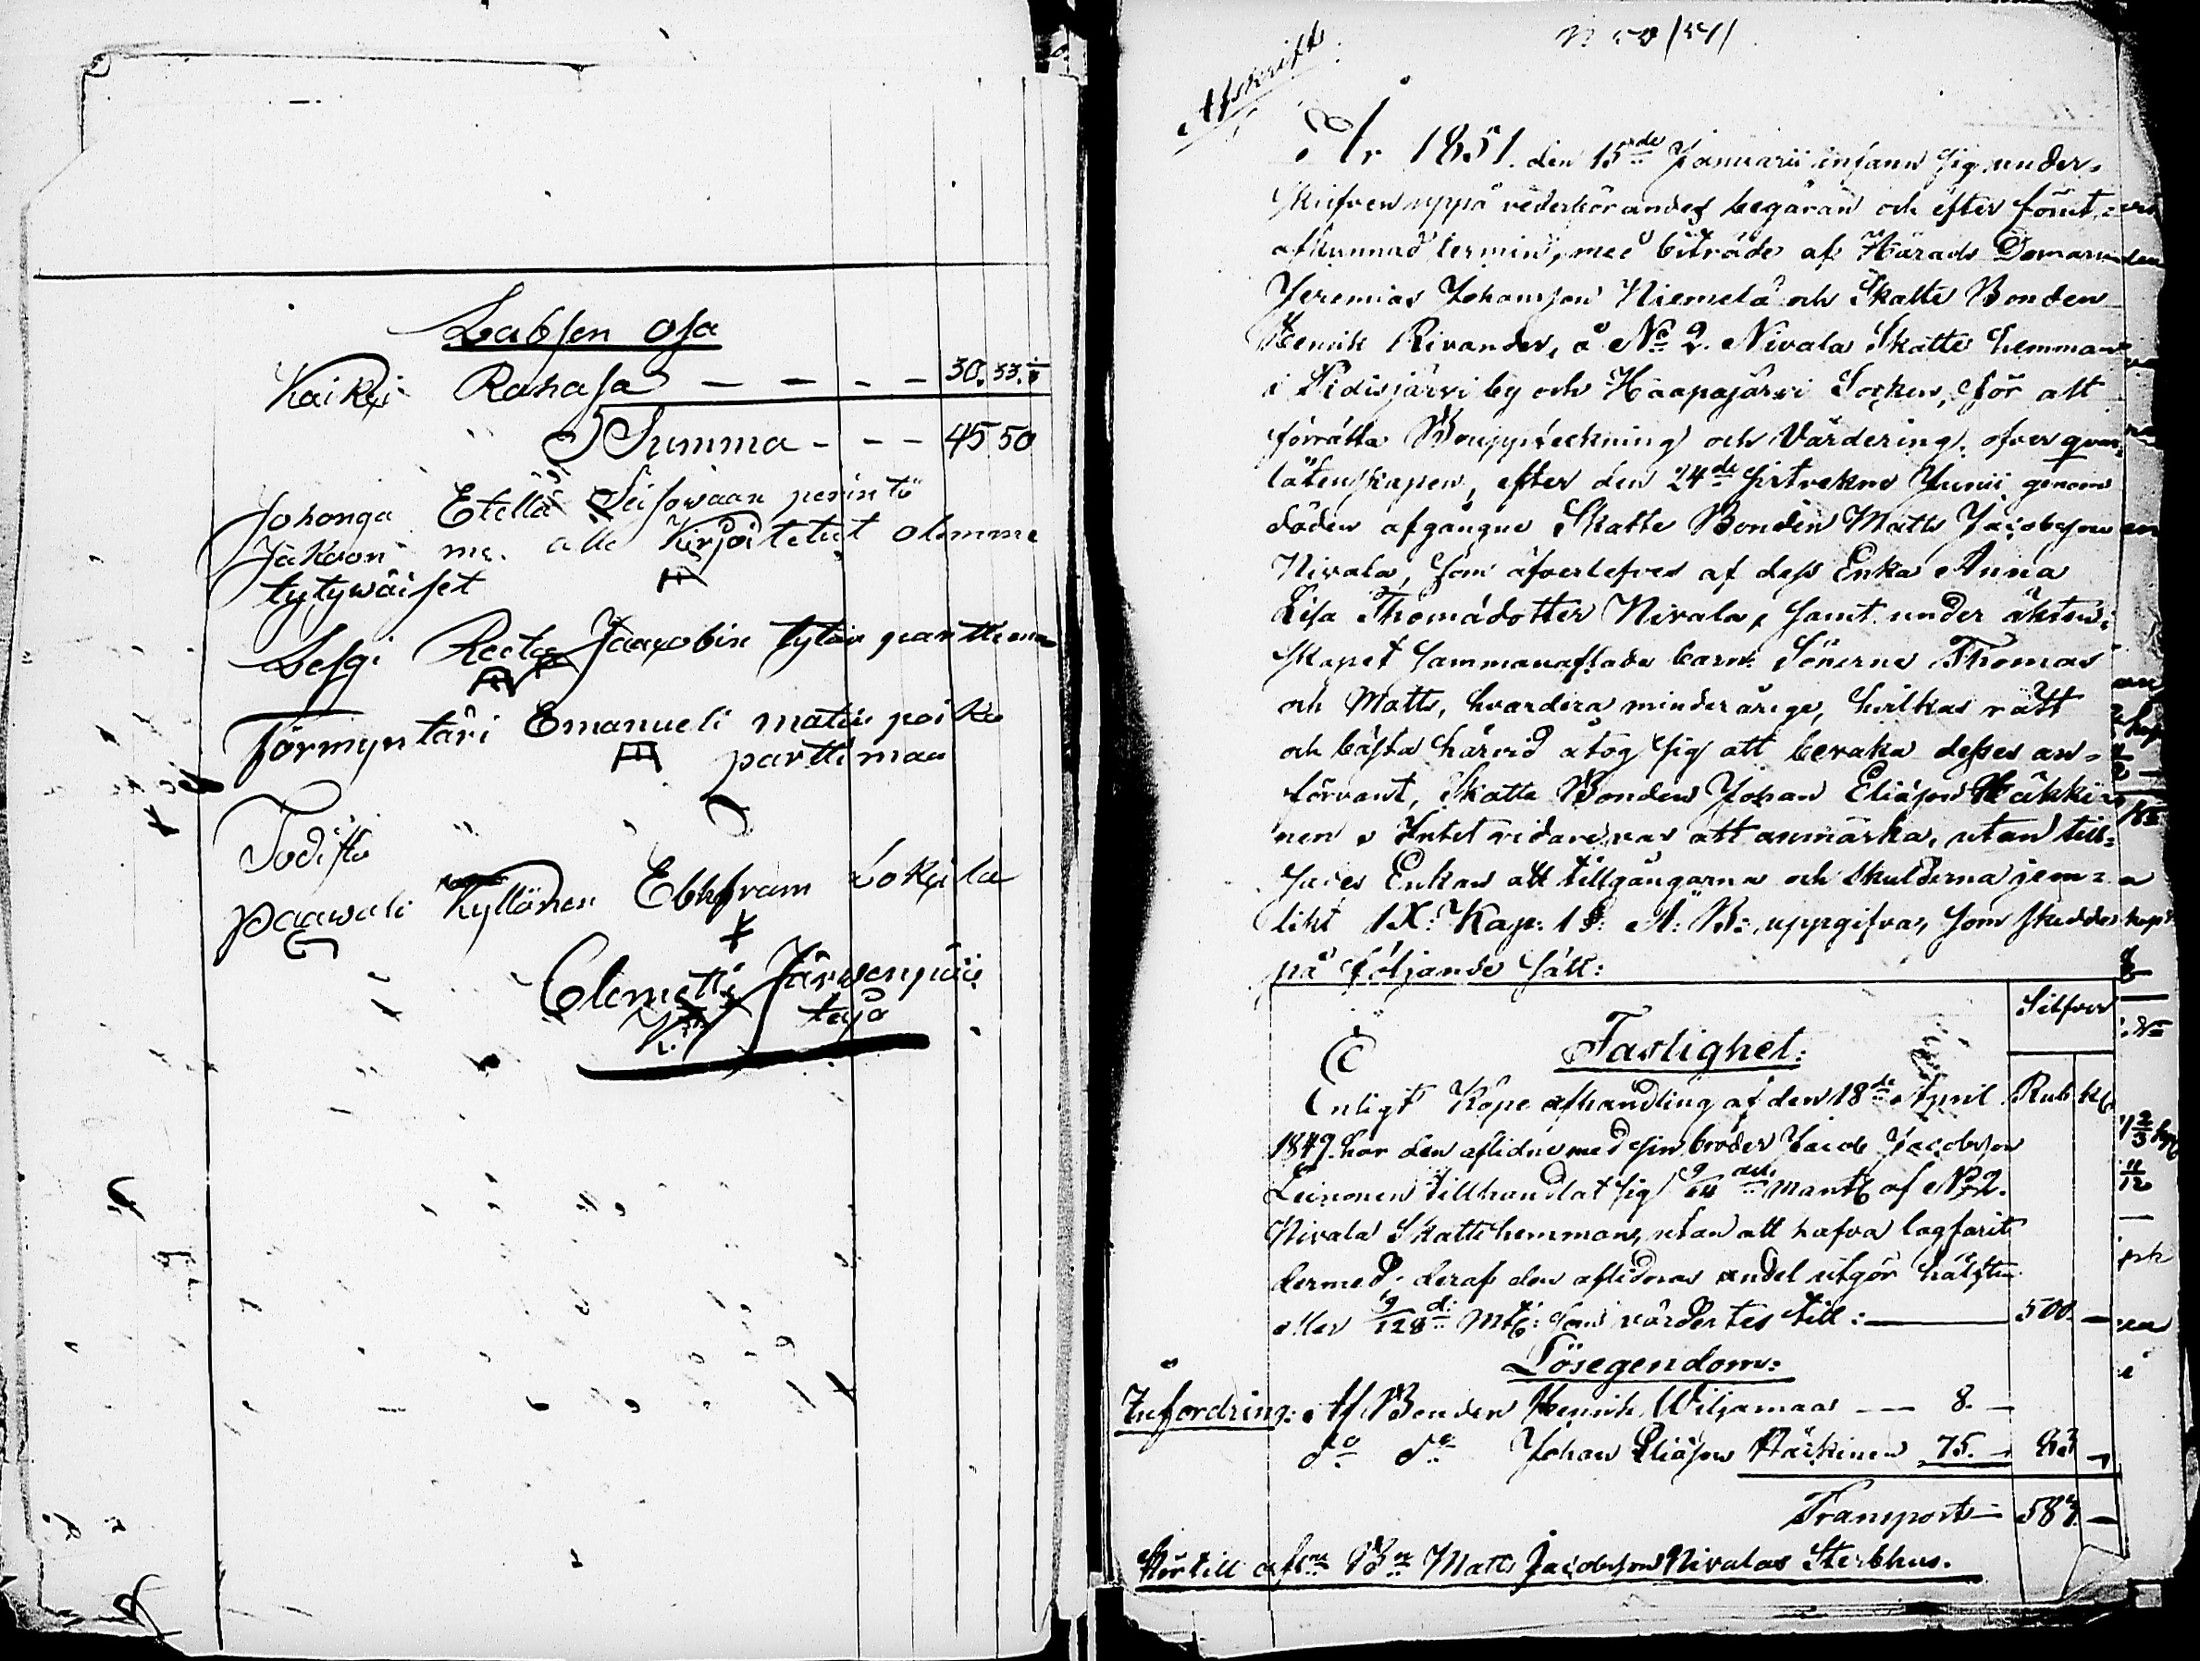 Labsen osa
Kaikki Rahasa — — — — 30. 33.
Summa - - - 45 50
Johonga Etellä Seisowaan perintö
Jakoon me. alle Kirjoitetut olemme
tytywäiset
Lesgi Reeta Jaacobin tytär parttima
Förmyntäri Emanueli matin poika
parttiman
Todistu
Paawali Kyllönen Ebhfram Lokkila
Clemetti Järwenpää
Afskrift.
År 1851. den 15de Januarii infann sig under-
skrifven uppå vederbörandes begäran och efter förut
afkunnad termin, med biträde af Härads Domaren
Jeremias Johansson Niemelä och Skatte Bonden
Henrik Rivander, å No 2. Nivala Skatte hemman
i Pidisjärvi by och Haapajärvi Socken, för att
förrätta Bouppteckning och Värdering, öfver qvar-
låtenskapen, efter den 24de sistvekne Junii genom
döden afgångne Skatte Bonden Matts Jacobsson
Nivala, som äfverlefves af dess Enka Anna
Lisa Thomädotter Nivala, samt under äkten-
skapet sammanaflade barn: Sönerne Thomas
och Matts, hvardera minderårige, hvilkas rätt
och bästa härvid åtog sig att bevaka desses an-
förvant, Skatte Bonden Johan Eliäson Häkki-
nen. Intet vidare var att anmärka, utan till-
sades Enkan att tillgångarna och skulderna jem-
likt IX: Kap: 1 §: Ä: B: uppgifva, som skedde
på följande sätt:
Silfver
Fastighet:
Rub K
Enligt Köpe afhandling af den 18de April
1849. har den aflidne med sin broder Jacob Jacobsson
Leinonen tillhandlat sig 9/64 del. Mantl af No 2.
Nivala Skattehemman, utan att hafva lagfarit
dermed; deraf den aflidnes andel utgör hälften
eller 9/128 d: Mtl: som värdertes till: — 500. —
Lösegendom:
Infordring: Af Bonden Henrik Wiljamaas — 8. —
do do Johan Eliäson Häckinen 75. — 83 —
Transport — 583. —
Hör till afl:ne B:n Matts Jacobsson Nivalas Sterbhus.